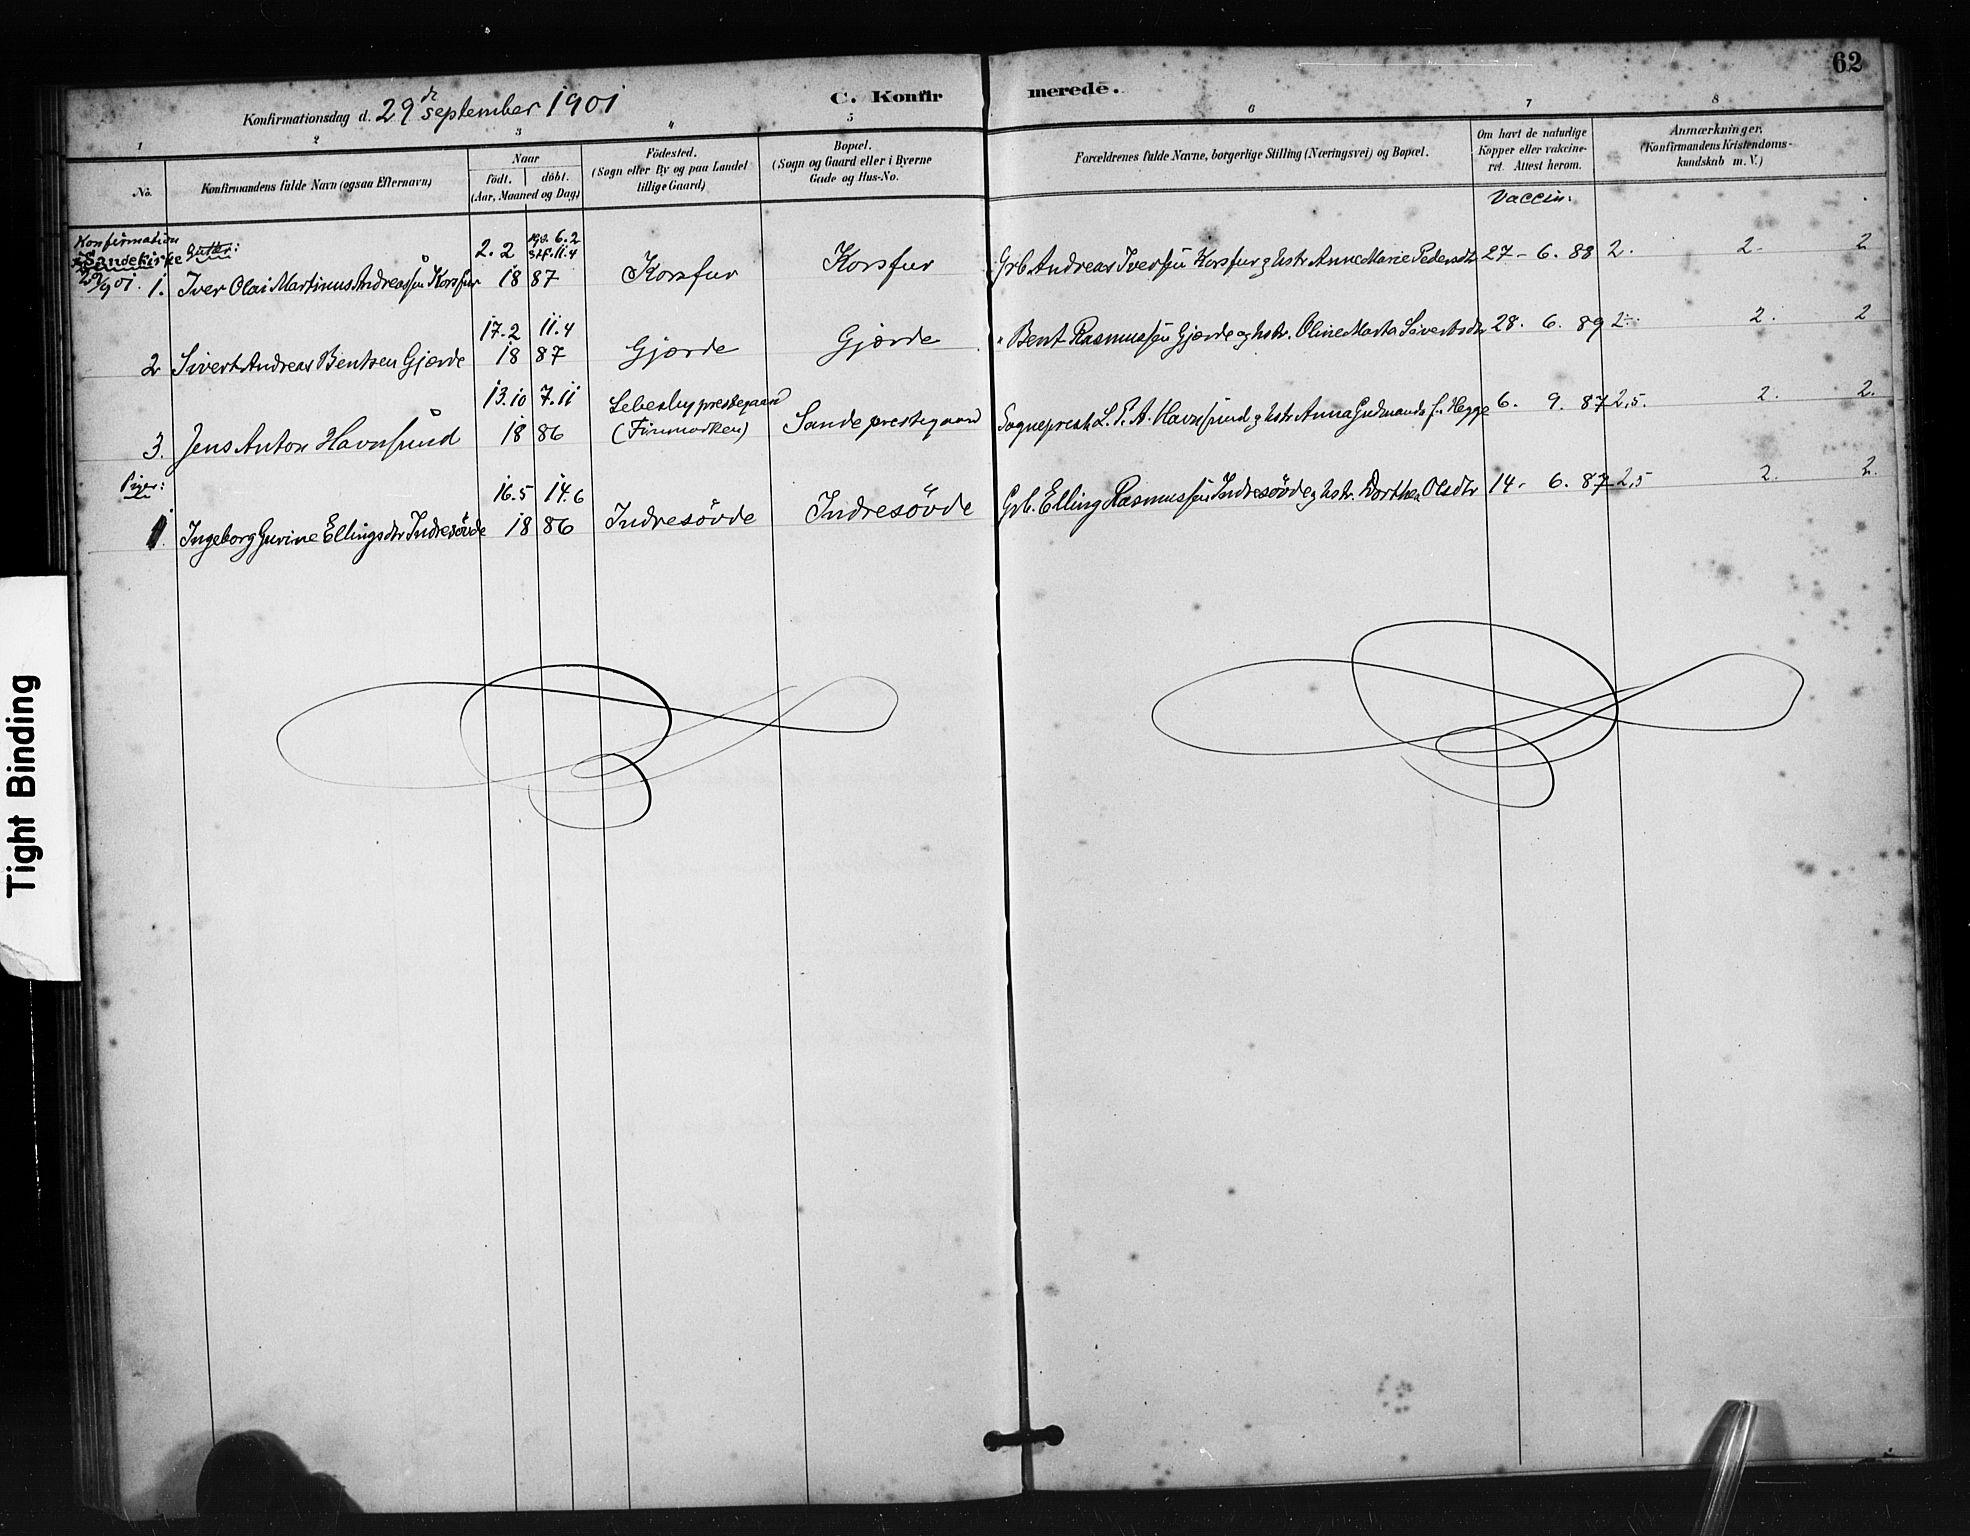 62
Konfirmationsdag d. 29de september 1901
C. Konfirmerede.
1 2 3 4 5 6 7 8
No.
Konfirmandens fulde Navn (ogsaa Efternavn)
Naar
födt. döbt.
(Aar, Maaned og Dag)
Födested.
(Sogn eller By og paa Landet
tillige Gaard)
Bopæl.
(Sogn og Gaard eller i Byerne
Gade og Hus-No.
Forældrenes fulde Navne, borgerlige Stilling (Næringsvei) og Bopæl.
Om havt de naturlige
Kopper eller vaccine-
ret. Attest herom.
Anmærkninger.
(Konfirmandens Kristendoms-
kundskab m. V.)
Vaccin:
Konfirmation
Sandekirke
29/9 01.
Gutter:
1. Iver Olai Martinus Andreassen Korsfur 2.2 18 87 6.2 11.4 Korsfur Korsfur Grb. Andreas Iversen Korsfur g hstr Anne Marie Pedersdtr 27 - 6. 88 2. 2- 2
2 Sivert Andreas Bentsen Gjerde 17.2 11.4 18 87 Gjerde Gjerde " Bent Rasmussen Gjerde og hstr. Oline Marta Sivertsdtr 28. 6. 89 2. 2. 2
3. Jens Anton Havnsund 13.10 7.11 18 86 Lebesby prestegaard (Finmarken) Sande prestegaard Sogneprest L. P. A. Havnsund g hstr Anna Gudmunda f. Hegge 6. 9. 87 2,5. 2. 2.
Piger:
1. Ingeborg Gurine Ellingsdtr Indresövde 16.5 14.6 18 86 Indresövde Indresövde Grb. Elling Rasmussen Indresövde g hstr. Dorthea Olsdtr 14- 6. 87 2,5 2. 2.
Tight Binding